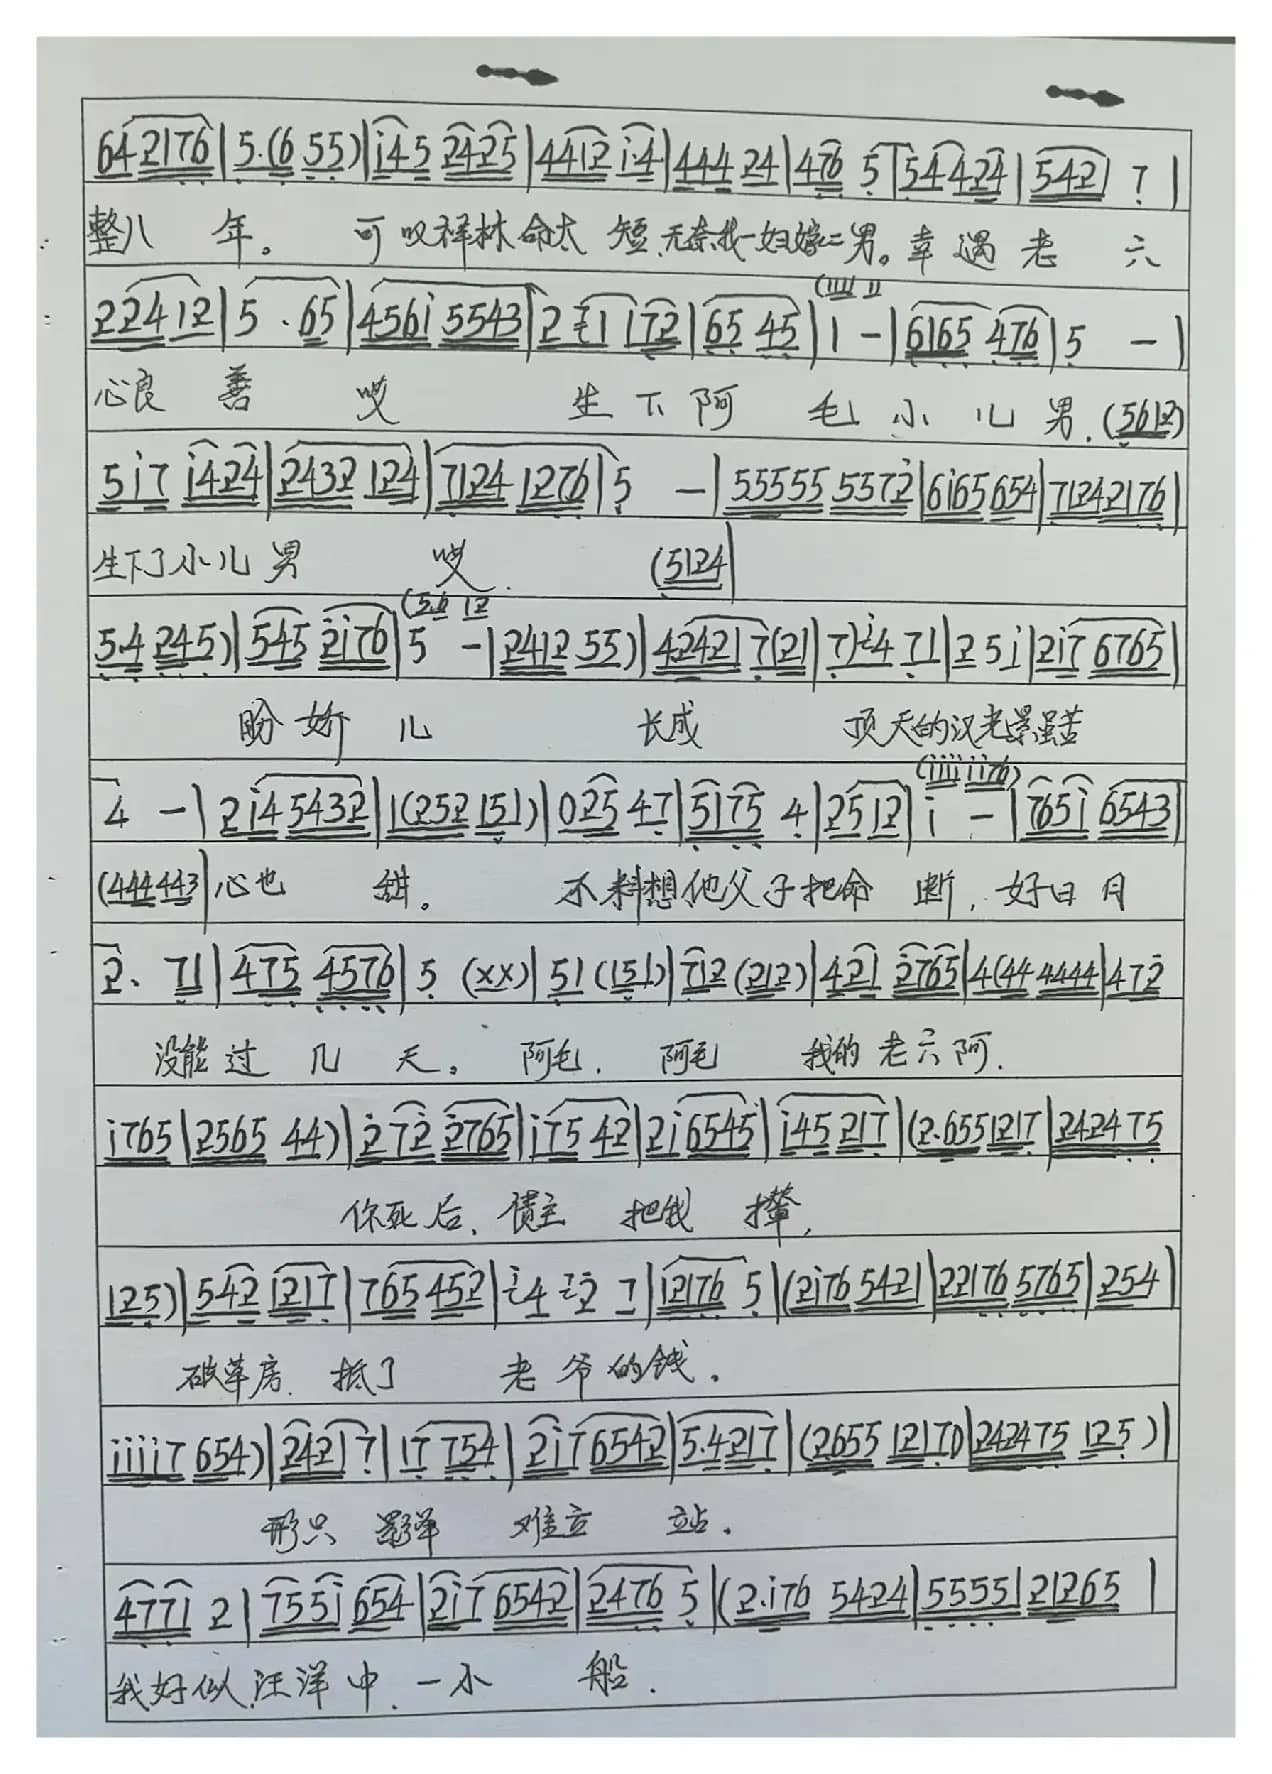 642176|5.(6 55)|i45 2425|4412 i.4|444 24|476 5|54424|5421 7|
整八 年。 可叹祥林命太 短,无奈我一妇嫁二男。幸遇老 六
(1111 11
22412|5 . 65|456i 5543|2 71 172|65 45|1 -|6165 476|5 -|
心良 善 哎 生下阿 毛小儿男,(5612)
5i7 i424|2432 124|7124 1276|5 -|55555 5572|6i65 654|71242176|
生下了小儿男 哎. (5124|
(5.6 12
5.4 245)|545 2i76|5 -|2412 55)|42421 7(21|7)i4 71|2 5i|2i7 6765|
盼娇儿 长成 顶天的汉光景虽苦
(iiii ii76)
4 -|2i4 5432|1(252 151)|025 47|5175 4|2512|i -|765i 6543|
(444443|心也 甜。 不料想他父子把命 断,好日月
2. 71|475 4576|5 (XX)|51(151)|712(212)|421 2765|4(44 4444|472
没能过 几 天。 阿毛, 阿毛 我的老六阿.
i765|2565 44)|272 2765|i75 42|2i6545|i45 217|(2.655 1217|242475
你死后,债主 把我 撵,
125)|542 1217|765 452|i4 i2 7|12176 5|(2i76 5421|22176 5765|254|
破草房, 抵了 老爷的钱。
iiii7 654)|24217|17 754|2i7 6542|5.4217|(2655 1217)|242475 125)|
形只 影单 难立 站。
477i 2|755i 654|2i7 6542|2476 5|(2.i76 5424|5555|21265 |
我好似汪洋中,一小 船.